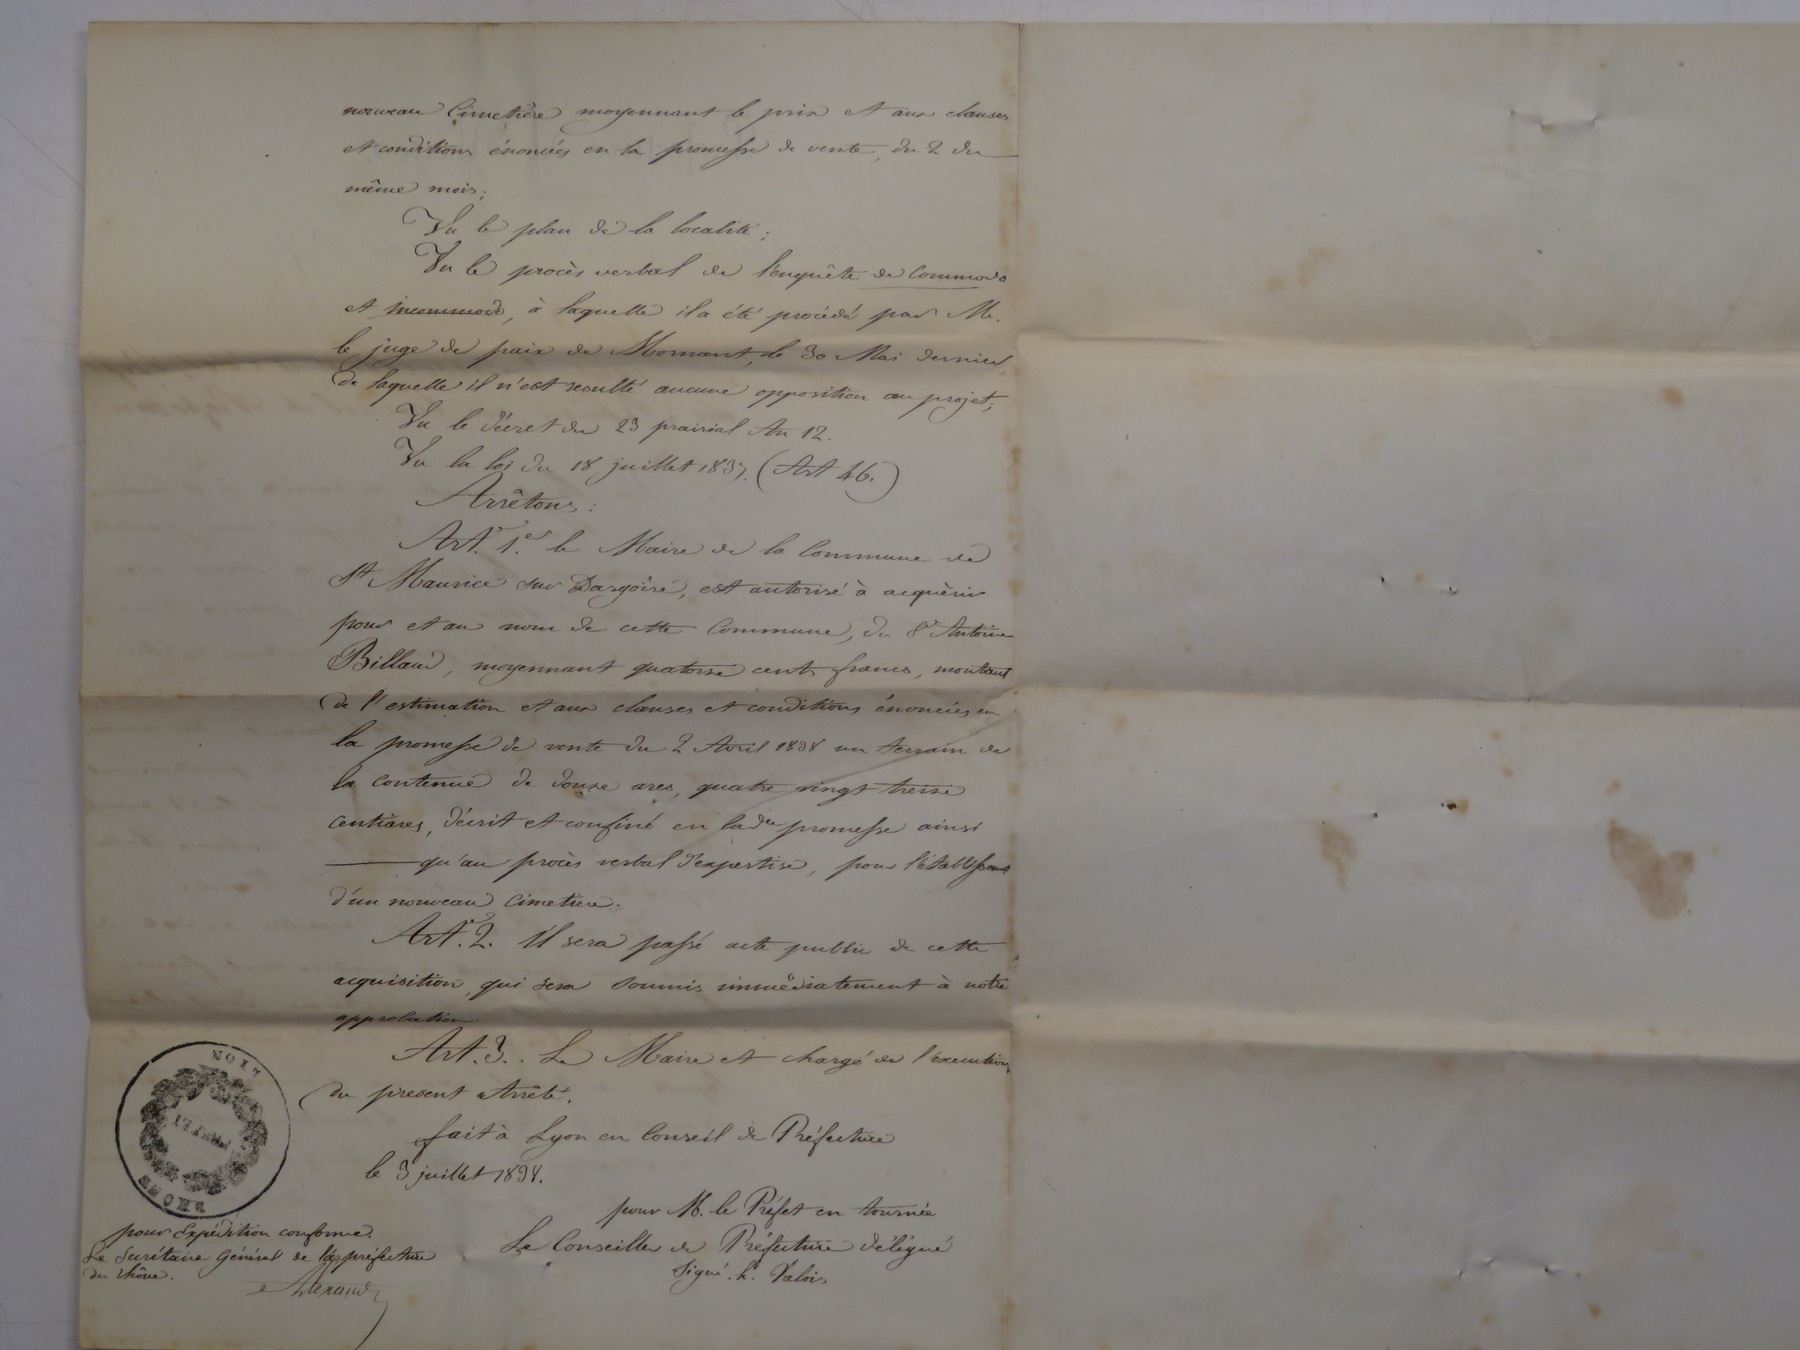 nouveau Cimetière moyennant le prix et aux clauses
et conditions énoncées en la promesse de vente, du 2 du
même mois;
Vu le plan de la localité;
Vu le procès verbal de l'enquête de Commodo
et incommodo, à laquelle il a été procédé par M.
le juge de paix de Mornant, le 30 Mai dernier
de laquelle il n'est resulté aucune opposition au projet;
Vu le décret du 23 prairial An 12.
Vu la loi du 18 juillet 1837. (Art 46.)
Arrêtons:
Art. 1er. le Maire de la Commune de
St Maurice sur Dargoire, est autorisé à acquérir
pour et au nom de cette Commune, du Sr Antoine
Billaud, moyennant quatorse cent francs, montant
de l'estimation et aux clauses et conditions énoncées en
la promesse de vente du 2 Avril 1838 un terrain de
la contenue de douse ares, quatre vingt treise
centiares, décrit et confiné en lade promesse ainsi
qu'au procès verbal d'expertise, pour l'établissement
d'un nouveau Cimetière.
Art. 2. Il sera passé acte public de cette
acquisition, qui sera soumis immédiatement à notre
approbation.
Art. 3. Le Maire et chargé de l'execution
du présent Arrêté.
fait à Lyon en Conseil de Préfecture
le 3 juillet 1838.
pour M. le Préfet en tournée
Le Conseiller de Préfecture délégué
Signé. h. Valois
pour Expédition conforme.
Le Secrétaire Général de la préfecture
du rhône.
Alexand
RHONE